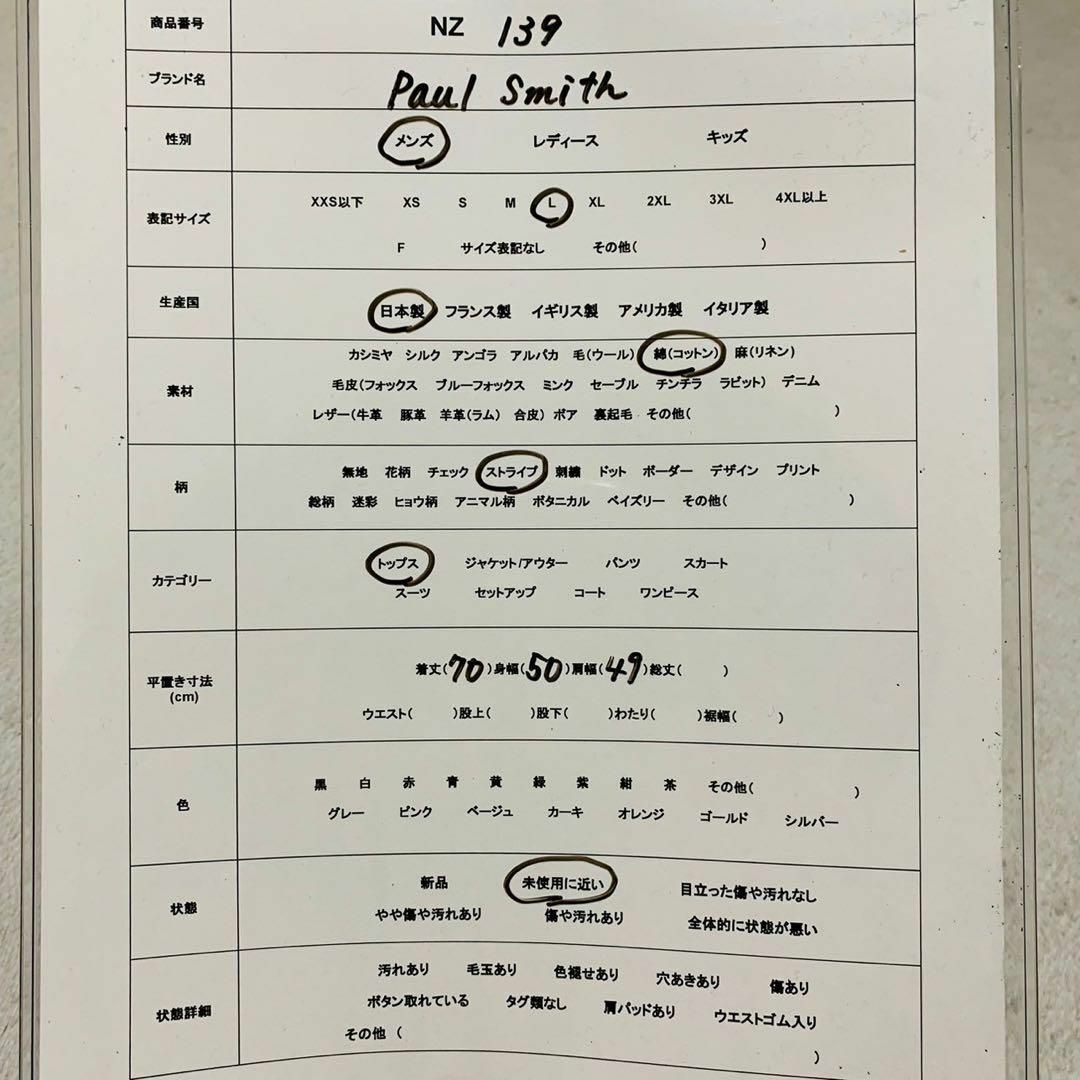 商品番号 NZ 139
ブランド名 Paul Smith
性別 メンズ レディース キッズ
表記サイズ
XXS以下 XS S M L XL 2XL 3XL 4XL以上
F サイズ表記なし その他( )
生産国 日本製 フランス製 イギリス製 アメリカ製 イタリア製
素材
カシミヤ シルク アンゴラ アルパカ 毛(ウール) 綿(コットン) 麻(リネン)
毛皮(フォックス ブルーフォックス ミンク セーブル チンチラ ラビット) デニム
レザー(牛革 豚革 羊革(ラム) 合皮) ボア 裏起毛 その他( )
柄
無地 花柄 チェック ストライプ 刺繍 ドット ボーダー デザイン プリント
総柄 迷彩 ヒョウ柄 アニマル柄 ボタニカル ペイズリー その他( )
カテゴリー
トップス ジャケット/アウター パンツ スカート
スーツ セットアップ コート ワンピース
平置き寸法
(cm)
着丈(70)身幅(50)肩幅(49)総丈( )
ウエスト( )股上( )股下( )わたり( )裾幅( )
色
黒 白 赤 青 黄 緑 紫 紺 茶 その他( )
グレー ピンク ベージュ カーキ オレンジ ゴールド シルバー
状態
新品 未使用に近い 目立った傷や汚れなし
やや傷や汚れあり 傷や汚れあり 全体的に状態が悪い
状態詳細
汚れあり 毛玉あり 色褪せあり 穴あきあり 傷あり
ボタン取れている タグ類なし 肩パッドあり ウエストゴム入り
その他 ( )